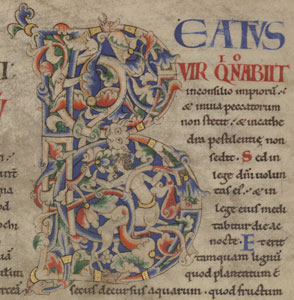 BEATVS
VIR QNABIIT
inconsilio impiorū·
& inuia peccatorum
non stetit· & incathe
dra pestilentię non
sedit· Sed in
lege dn̄i uolun
tas ei'· & in
lege eius medi
tabitur die ac
nocte· Et erit
tamquam lignū
quod plantatum ē
secus decursus aquarum· quod fructum